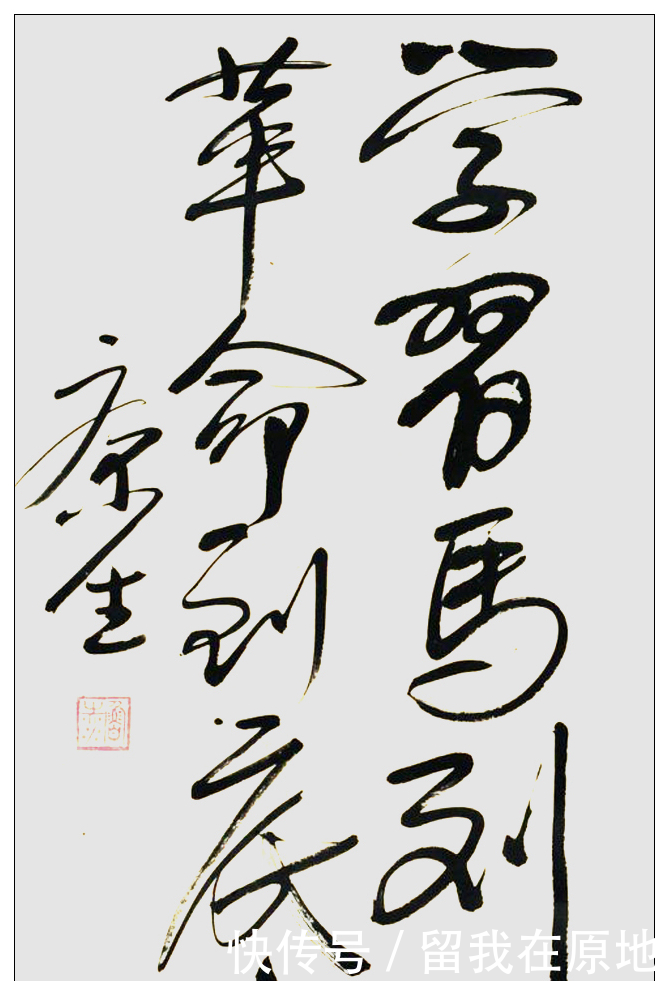 学習馬列
革命到底
康生
快传号 / 留我在原地